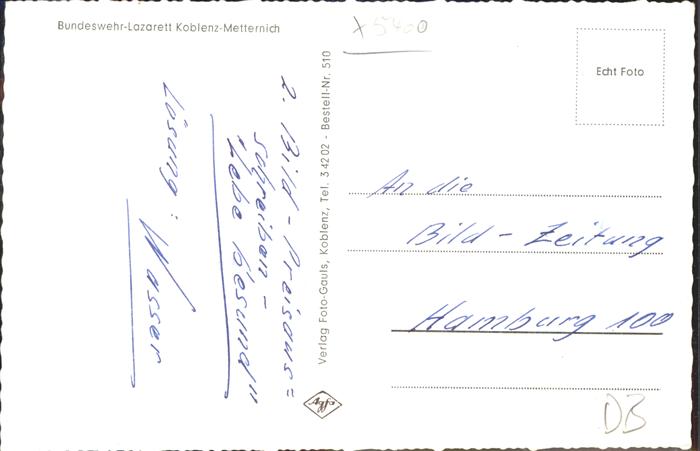 Bundeswehr-Lazarett Koblenz-Metternich
x5400
Echt Foto
2. Bild-Preisaus=
schreiben -
"Lebe Gesund"
Lösung: Wasser
Verlag Foto-Gauls, Koblenz, Tel. 34202 - Bestell-Nr. 510
An die
Bild-Zeitung
Hamburg 100
Agfa
DB